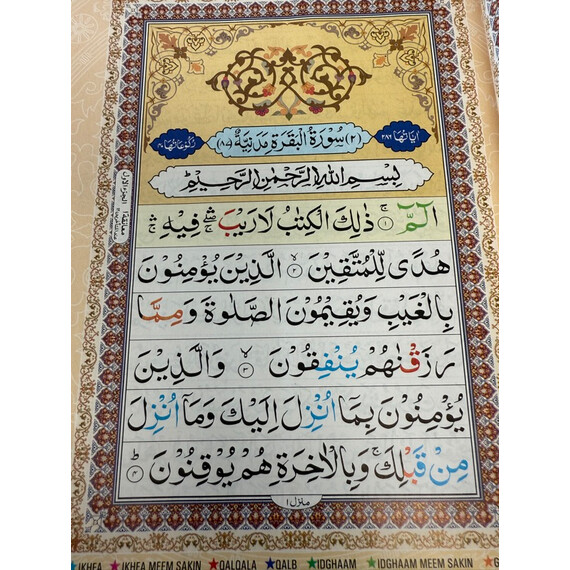 اٰيَاتُهَا ٢٨٦
(٢) سُوْرَةُ الْبَقَرَةِ مَدَنِيَّةٌ (٨٧)
رُكُوْعَاتُهَا ٤٠
بِسْمِ اللّٰهِ الرَّحْمٰنِ الرَّحِيْمِ
الٓمّٓ ۚ ﴿١﴾ ذٰلِكَ الْكِتٰبُ لَا رَيْبَ ۛۚ فِيْهِ ۛۚ
هُدًى لِّلْمُتَّقِيْنَ ﴿٢﴾ۙ الَّذِيْنَ يُؤْمِنُوْنَ
بِالْغَيْبِ وَيُقِيْمُوْنَ الصَّلٰوةَ وَمِمَّا
رَزَقْنٰهُمْ يُنْفِقُوْنَ ﴿٣﴾ۙ وَالَّذِيْنَ
يُؤْمِنُوْنَ بِمَآ اُنْزِلَ اِلَيْكَ وَمَآ اُنْزِلَ
مِنْ قَبْلِكَ ۚ وَبِالْاٰخِرَةِ هُمْ يُوْقِنُوْنَ ﴿٤﴾ؕ
منزل ١
IKHFA ★IKHFA MEEM SAKIN ★QALQALA ★QALB ★IDGHAAM ★IDGHAAM MEEM SAKIN ★G